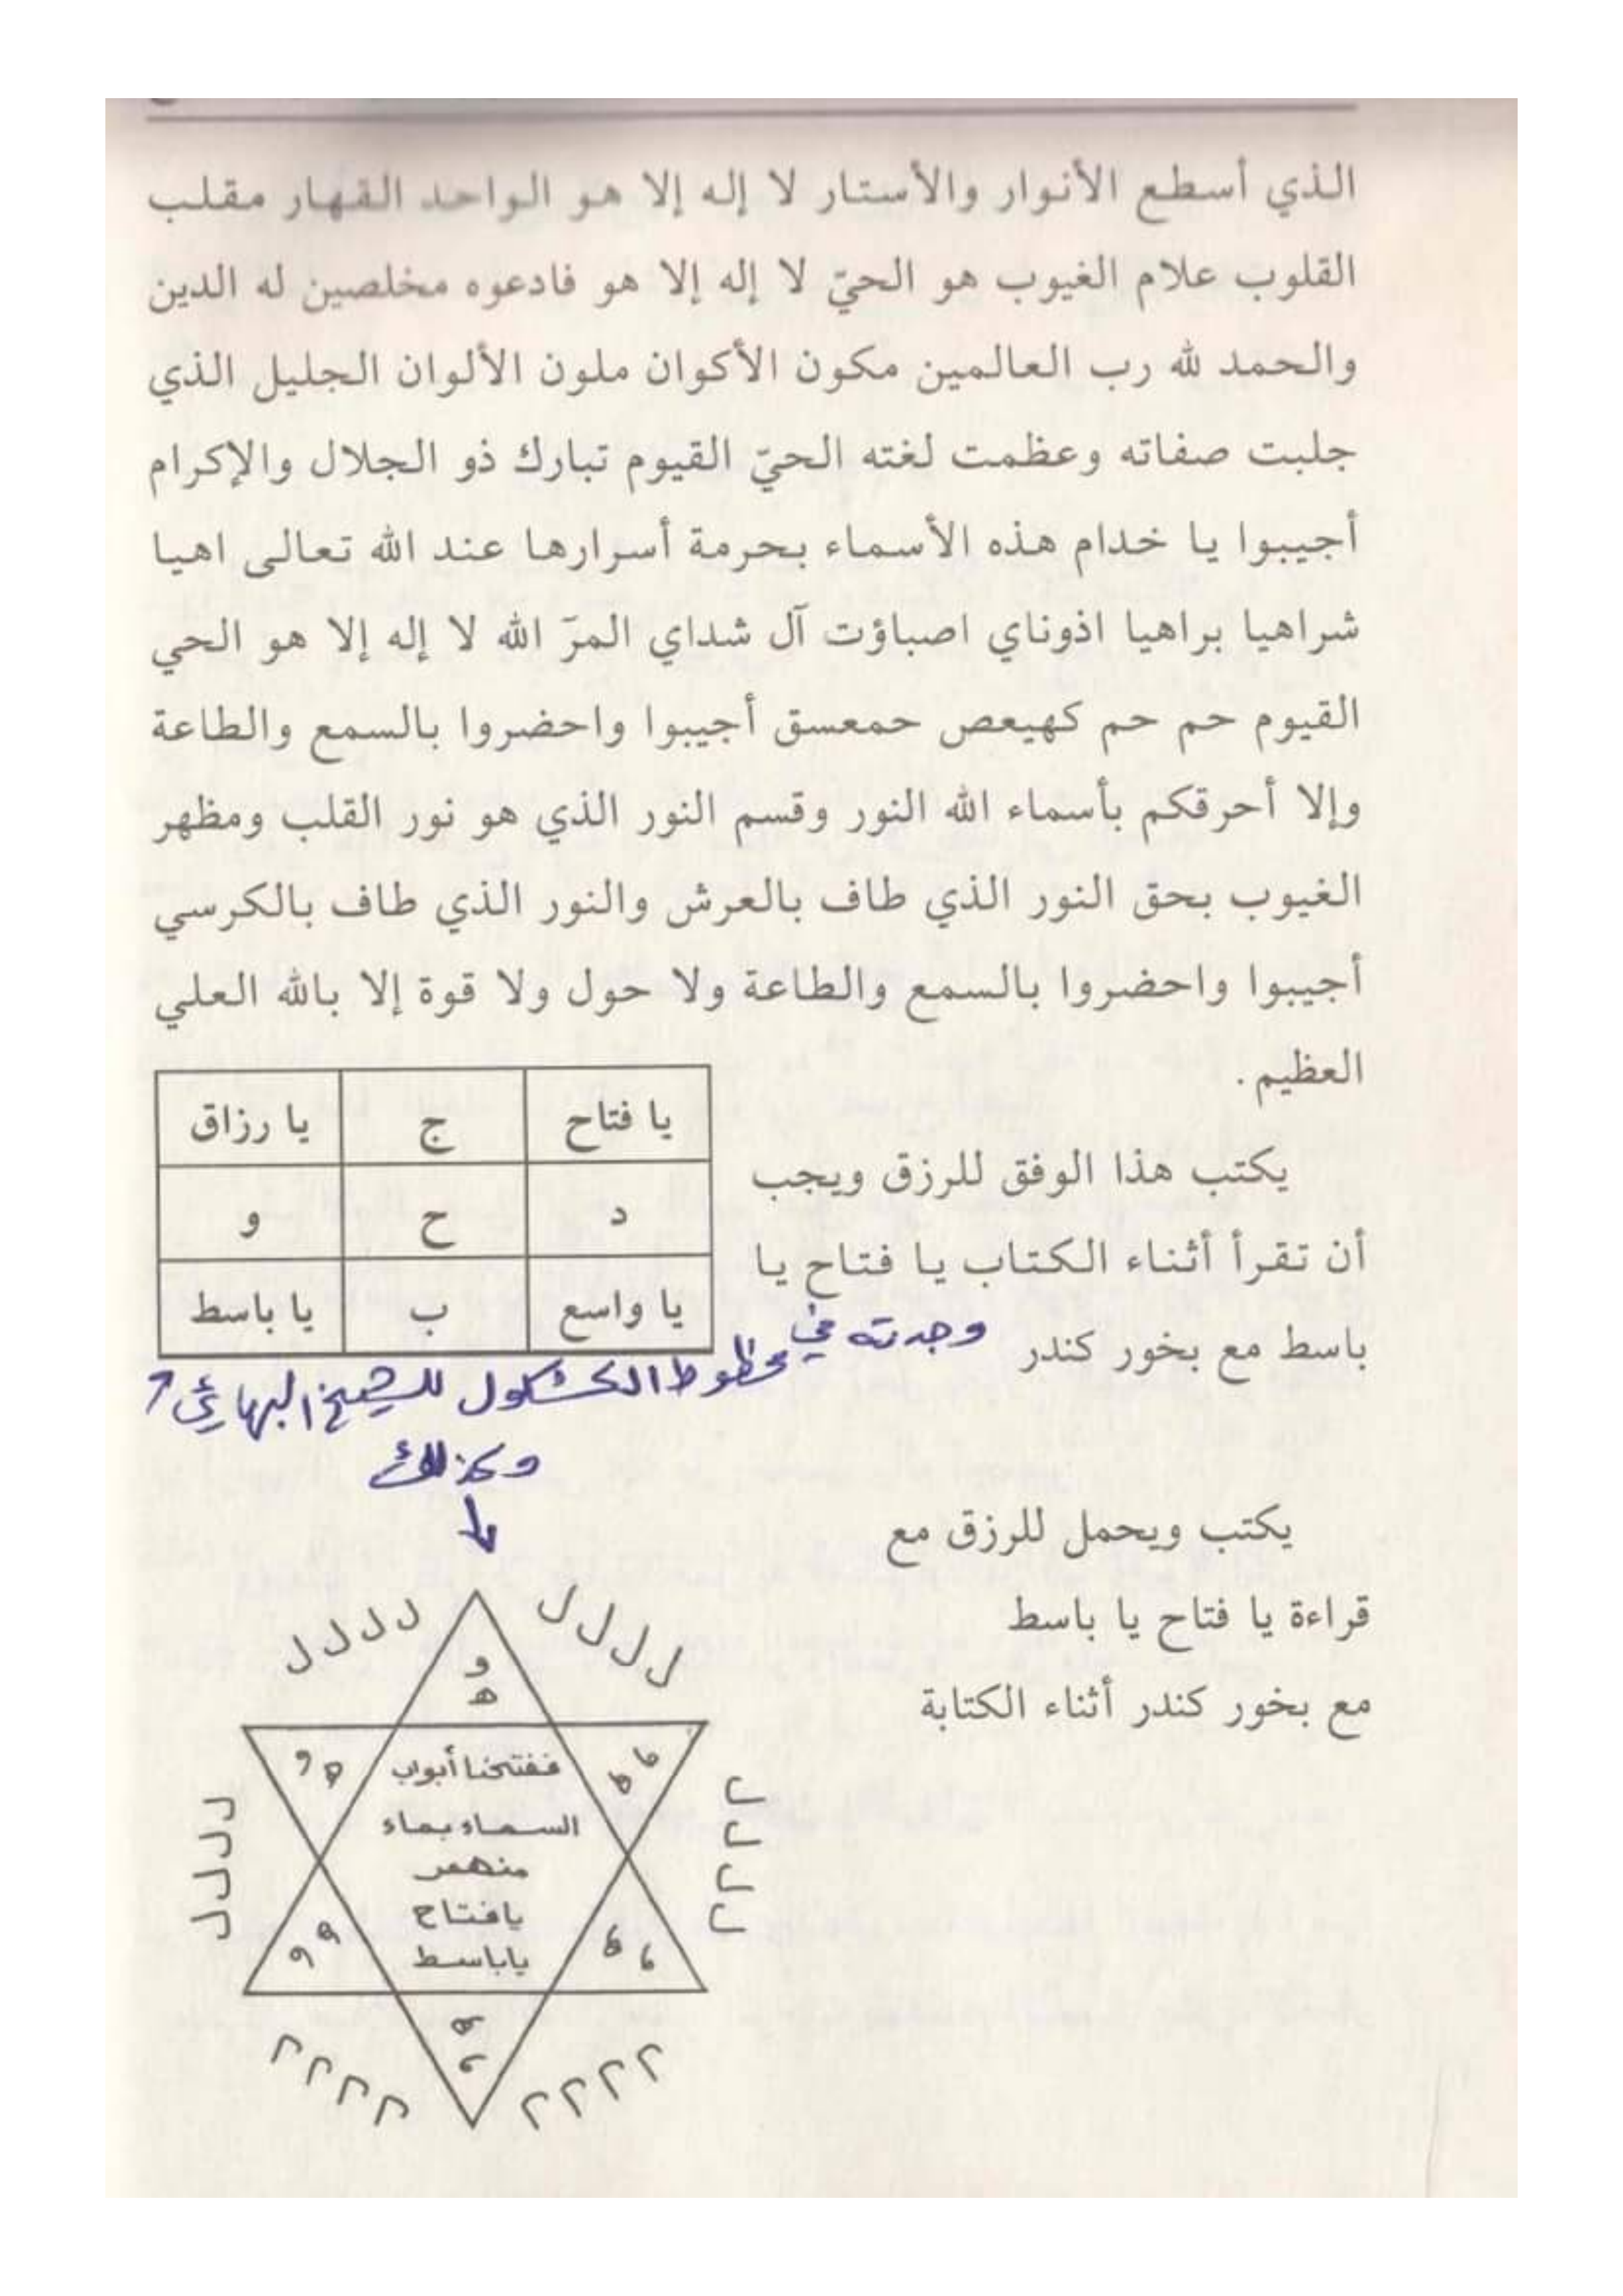 الذي أسطع الأنوار والأستار لا إله إلا هو الواحد القهار مقلب
القلوب علام الغيوب هو الحيّ لا إله إلا هو فادعوه مخلصين له الدين
والحمد لله رب العالمين مكون الأكوان ملون الألوان الجليل الذي
جلبت صفاته وعظمت لغته الحيّ القيوم تبارك ذو الجلال والإكرام
أجيبوا يا خدام هذه الأسماء بحرمة أسرارها عند الله تعالى اهيا
شراهيا براهيا اذوناي اصباؤت آل شداي المرّ الله لا إله إلا هو الحي
القيوم حم حم كهيعص حمعسق أجيبوا واحضروا بالسمع والطاعة
وإلا أحرقكم بأسماء الله النور وقسم النور الذي هو نور القلب ومظهر
الغيوب بحق النور الذي طاف بالعرش والنور الذي طاف بالكرسي
أجيبوا واحضروا بالسمع والطاعة ولا حول ولا قوة إلا بالله العلي
العظيم.
يا فتاح ج يا رزاق
د ح و
يا واسع ب يا باسط
يكتب هذا الوفق للرزق ويجب
أن تقرأ أثناء الكتاب يا فتاح يا
باسط مع بخور كندر
وجدته في
مخطوط الكشكول للشيخ البهائي
وكذلك
يكتب ويحمل للرزق مع
قراءة يا فتاح يا باسط
مع بخور كندر أثناء الكتابة
ل ل ل ل
ل ل ل ل
و
ه
و ه
و ه
ففتحنا أبواب
السماء بماء
منهمر
يافتاح
ياباسط
ل ل ل ل
ل ل ل ل
و ه
و ه
ه
و
ل ل ل ل
ل ل ل ل